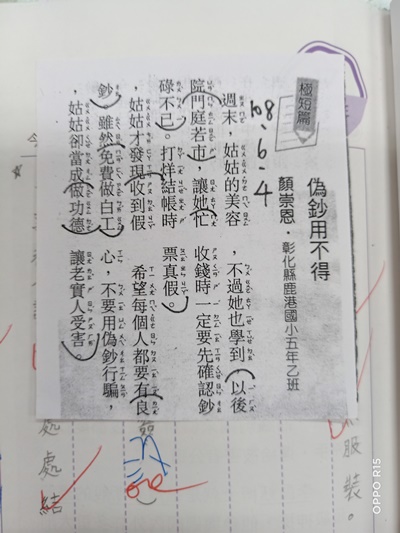 極短篇
偽鈔用不得
顏崇恩・彰化縣鹿港國小五年乙班
108.6.4
週末,姑姑的美容
院門庭若市,讓她忙
碌不已。打烊結帳時
,姑姑才發現收到假
鈔。雖然免費做白工
,姑姑卻當成做功德
,不過她也學到,以後
收錢時一定要先確認鈔
票真假。
希望每個人都要有良
心,不要用偽鈔行騙,
讓老實人受害。
服裝。
處處結
今
OPPO R15